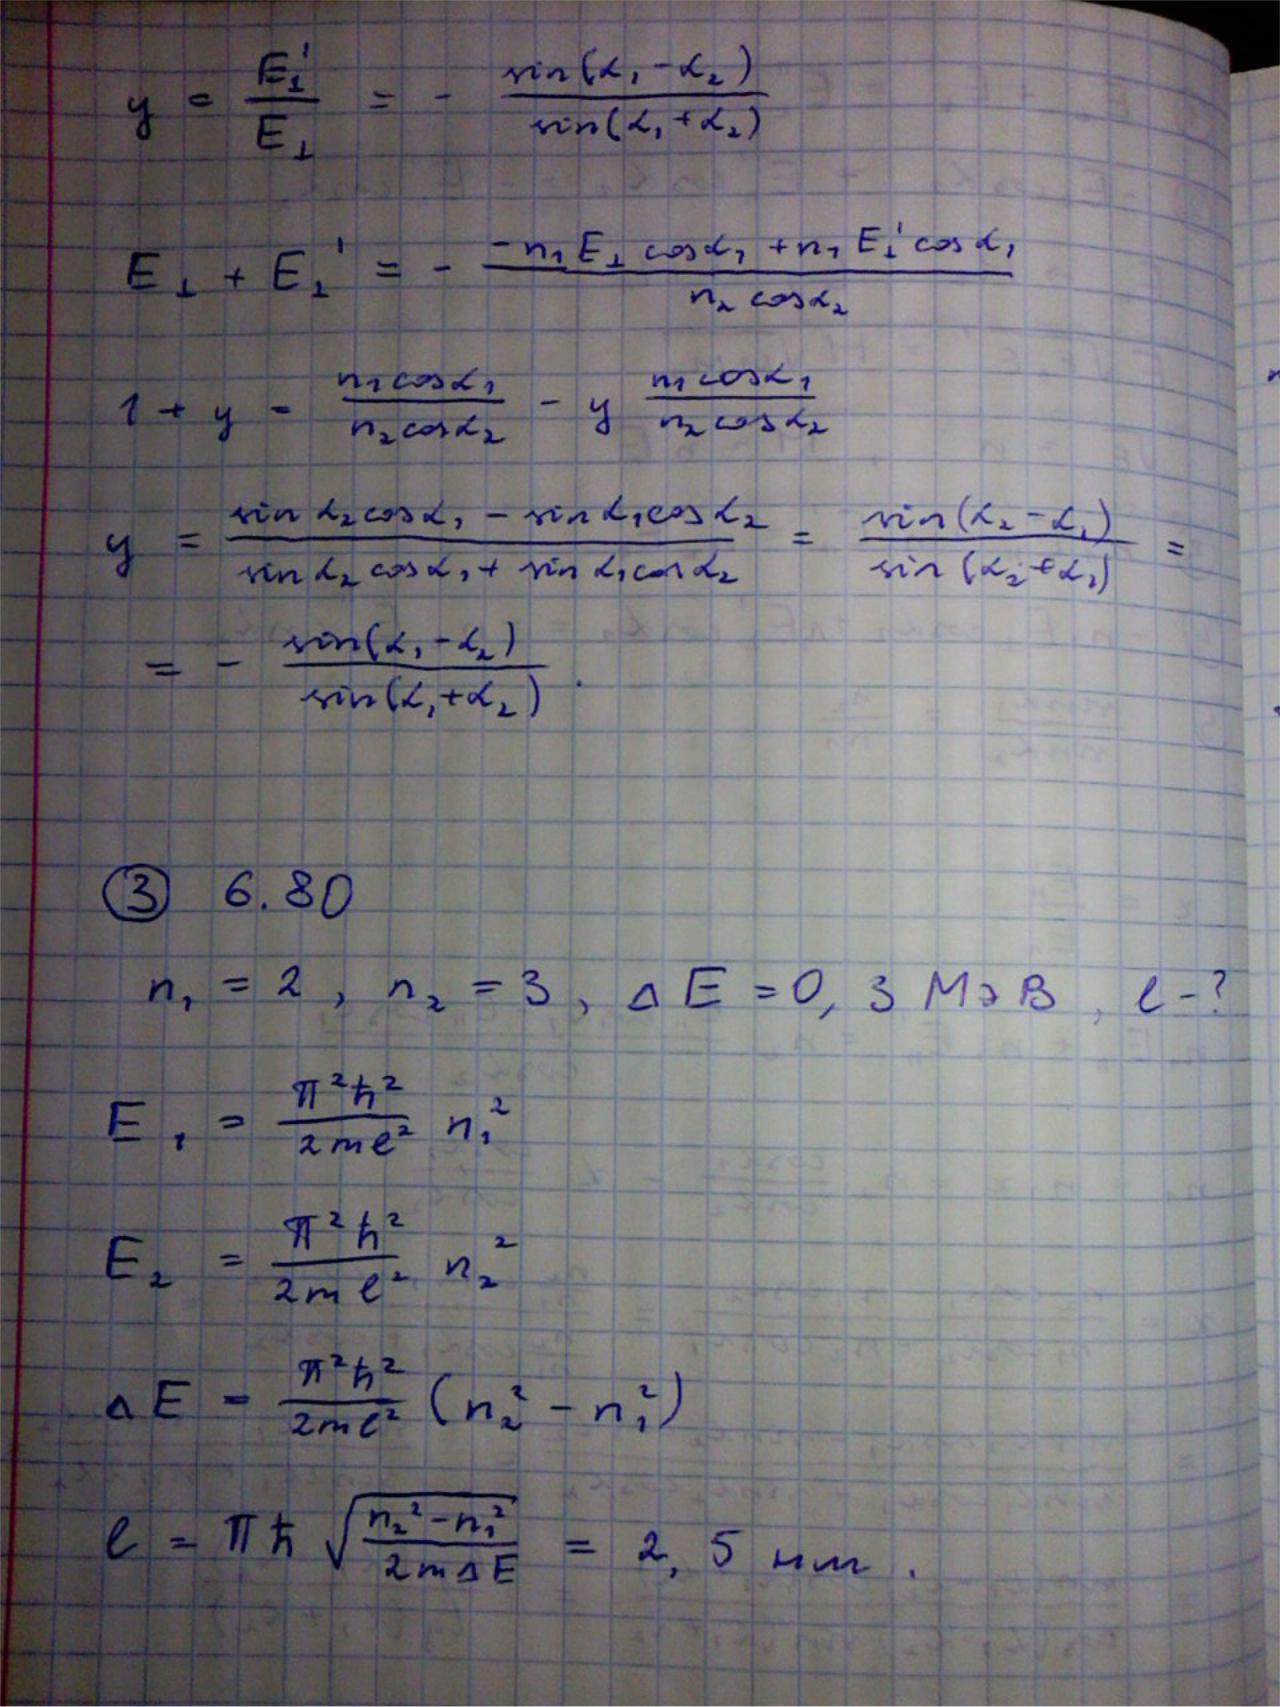 y = E⊥' / E⊥ = - sin(α₁ - α₂) / sin(α₁ + α₂)
E⊥ + E⊥' = - (-n₁ E⊥ cosα₁ + n₁ E⊥' cosα₁) / (n₂ cosα₂)
1 + y = (n₁ cosα₁) / (n₂ cosα₂) - y (n₁ cosα₁) / (n₂ cosα₂)
y = (sin α₂ cosα₁ - sin α₁ cosα₂) / (sin α₂ cosα₁ + sin α₁ cosα₂) = sin(α₂ - α₁) / sin(α₂ + α₁) =
= - sin(α₁ - α₂) / sin(α₁ + α₂).
③ 6.80
n₁ = 2, n₂ = 3, ΔE = 0,3 МэВ, ℓ - ?
E₁ = π²ħ² / 2mℓ² n₁²
E₂ = π²ħ² / 2mℓ² n₂²
ΔE = π²ħ² / 2mℓ² (n₂² - n₁²)
ℓ = πħ √((n₂² - n₁²) / 2mΔE) = 2,5 нм.